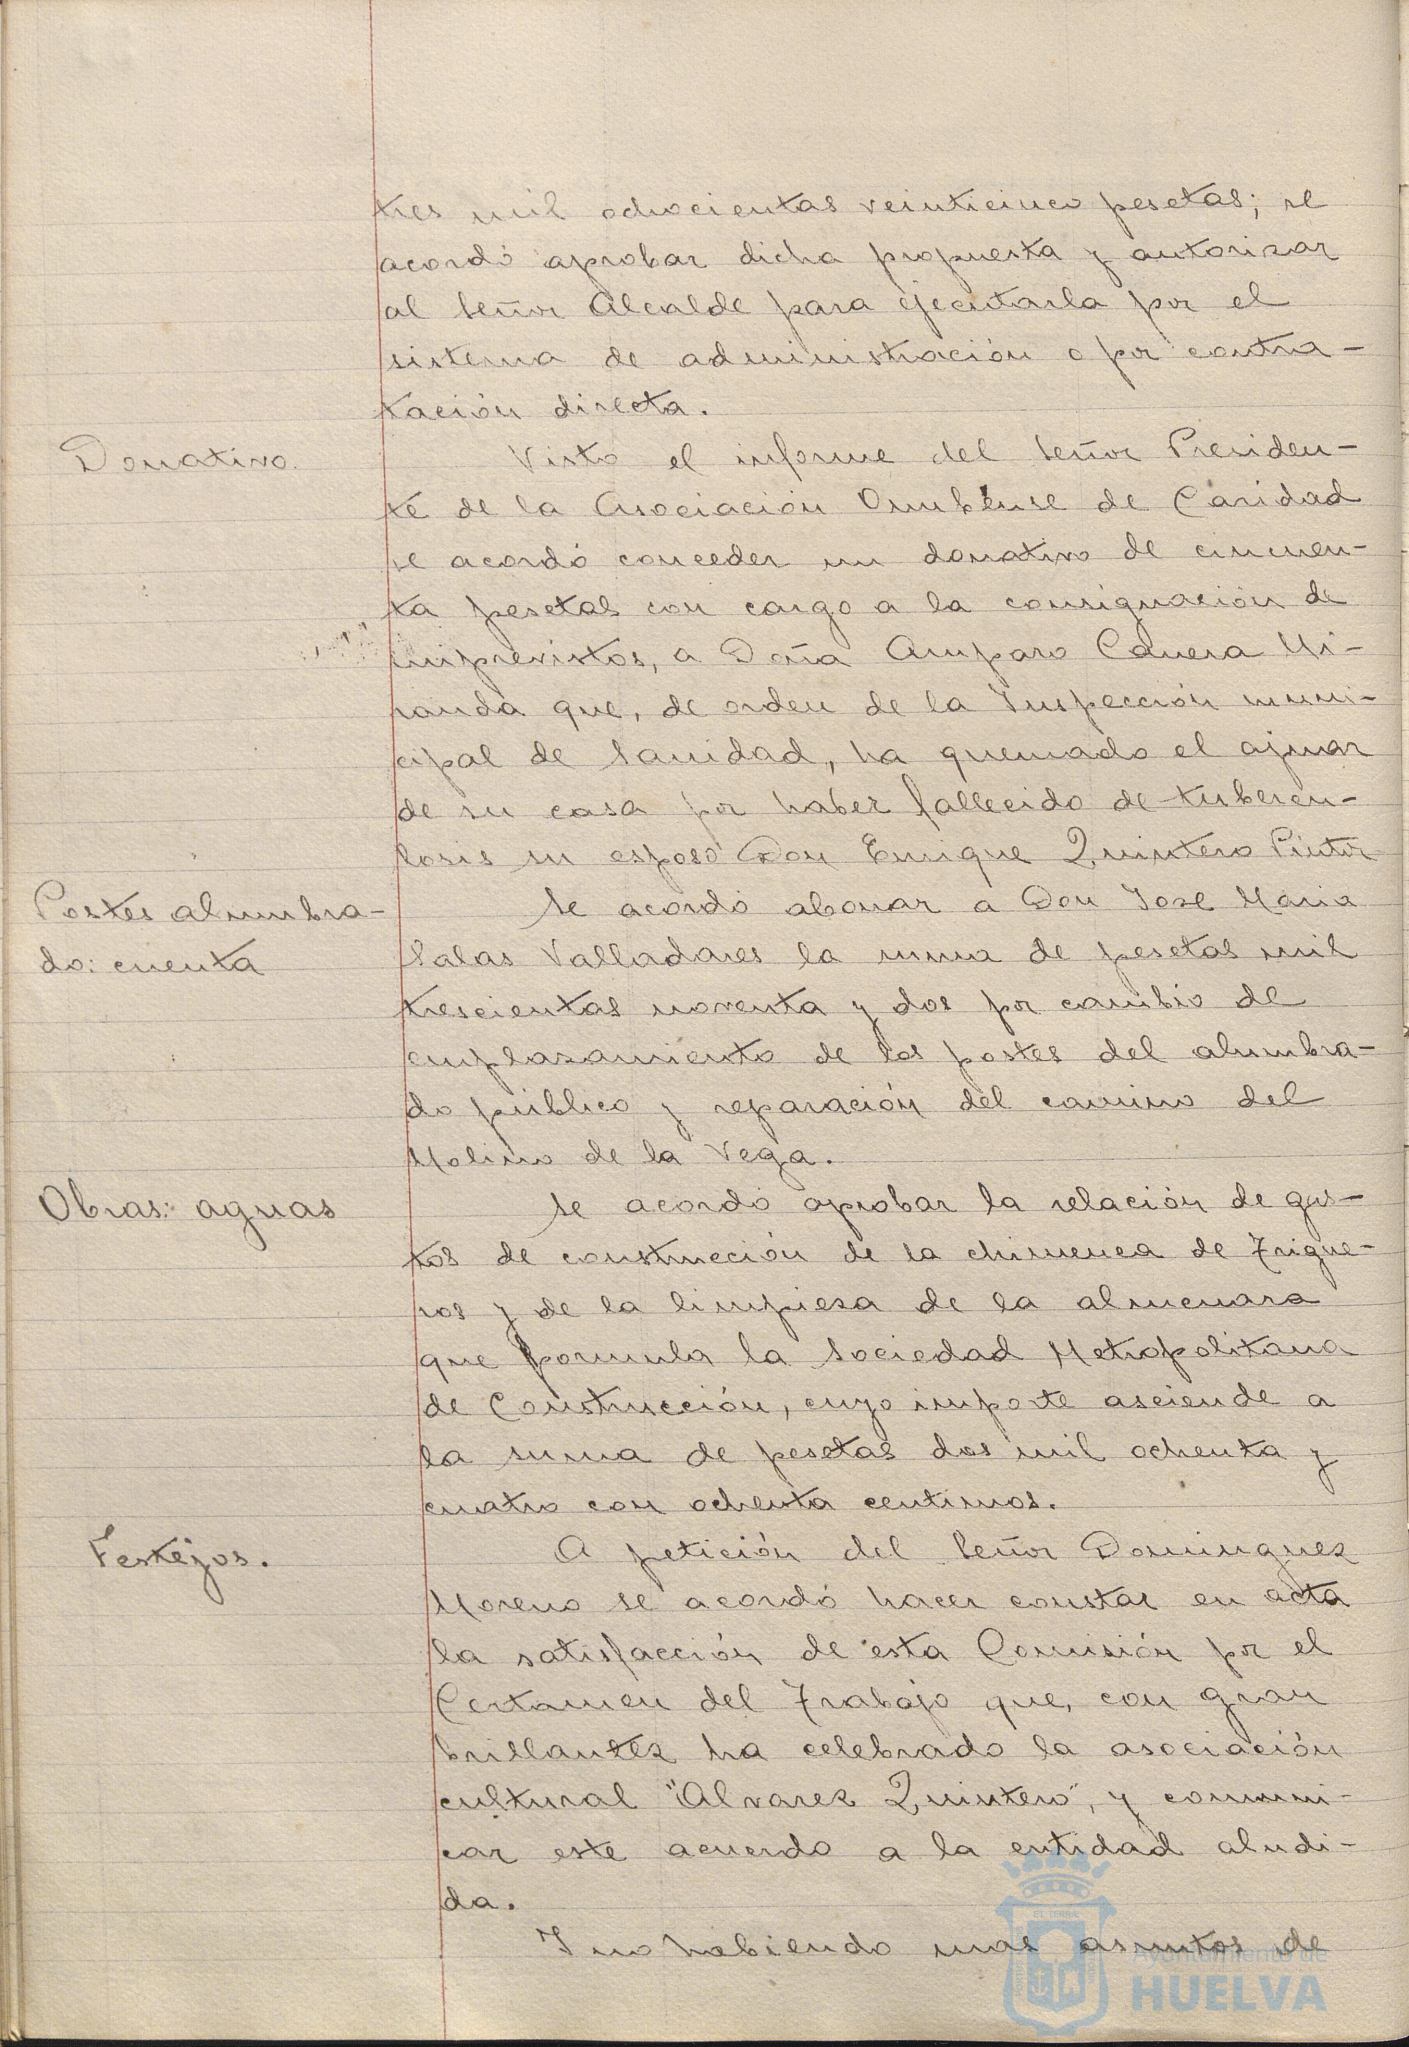 tres mil ochocientas veinticinco pesetas; se
acordó aprobar dicha propuesta y autorizar
al Señor Alcalde para ejecutarla por el
sistema de administración o por contra-
tación directa.
Donativo.
Visto el informe del Señor Presiden-
te de la Asociación Onubense de Caridad
se acordó conceder un donativo de cincuen-
ta pesetas con cargo a la consignación de
imprevistos, a Doña Amparo Mi-
randa que, de orden de la Inspección muni-
cipal de Sanidad, ha quemado el ajuar
de su casa por haber fallecido de tubercu-
losis su esposo Don Enrique Quintero Pintor
Postes alumbra-
do: cuenta
Se acordó abonar a Don José María
Salas Valladares la suma de pesetas mil
trescientas noventa y dos por cambio de
emplazamiento de los postes del alumbra-
do público y reparación del camino del
Molino de la Vega.
Obras: aguas
Se acordó aprobar la relación de gas-
tos de construcción de la chimenea de Trigue-
ros y de la limpieza de la almenara
que formula la Sociedad Metropolitana
de Construcción, cuyo importe asciende a
la suma de pesetas dos mil ochenta y
cuatro con ochenta centimos.
Festejos.
A petición del Señor Dominguez
Moreno se acordó hacer constar en acta
la satisfacción de esta Comisión por el
Certamen del Trabajo que, con gran
brillantez ha celebrado la asociación
cultural "Alvarez Quintero", y comuni-
car este acuerdo a la entidad aludi-
da.
Y no habiendo mas asuntos de
Ayuntamiento de
HUELVA